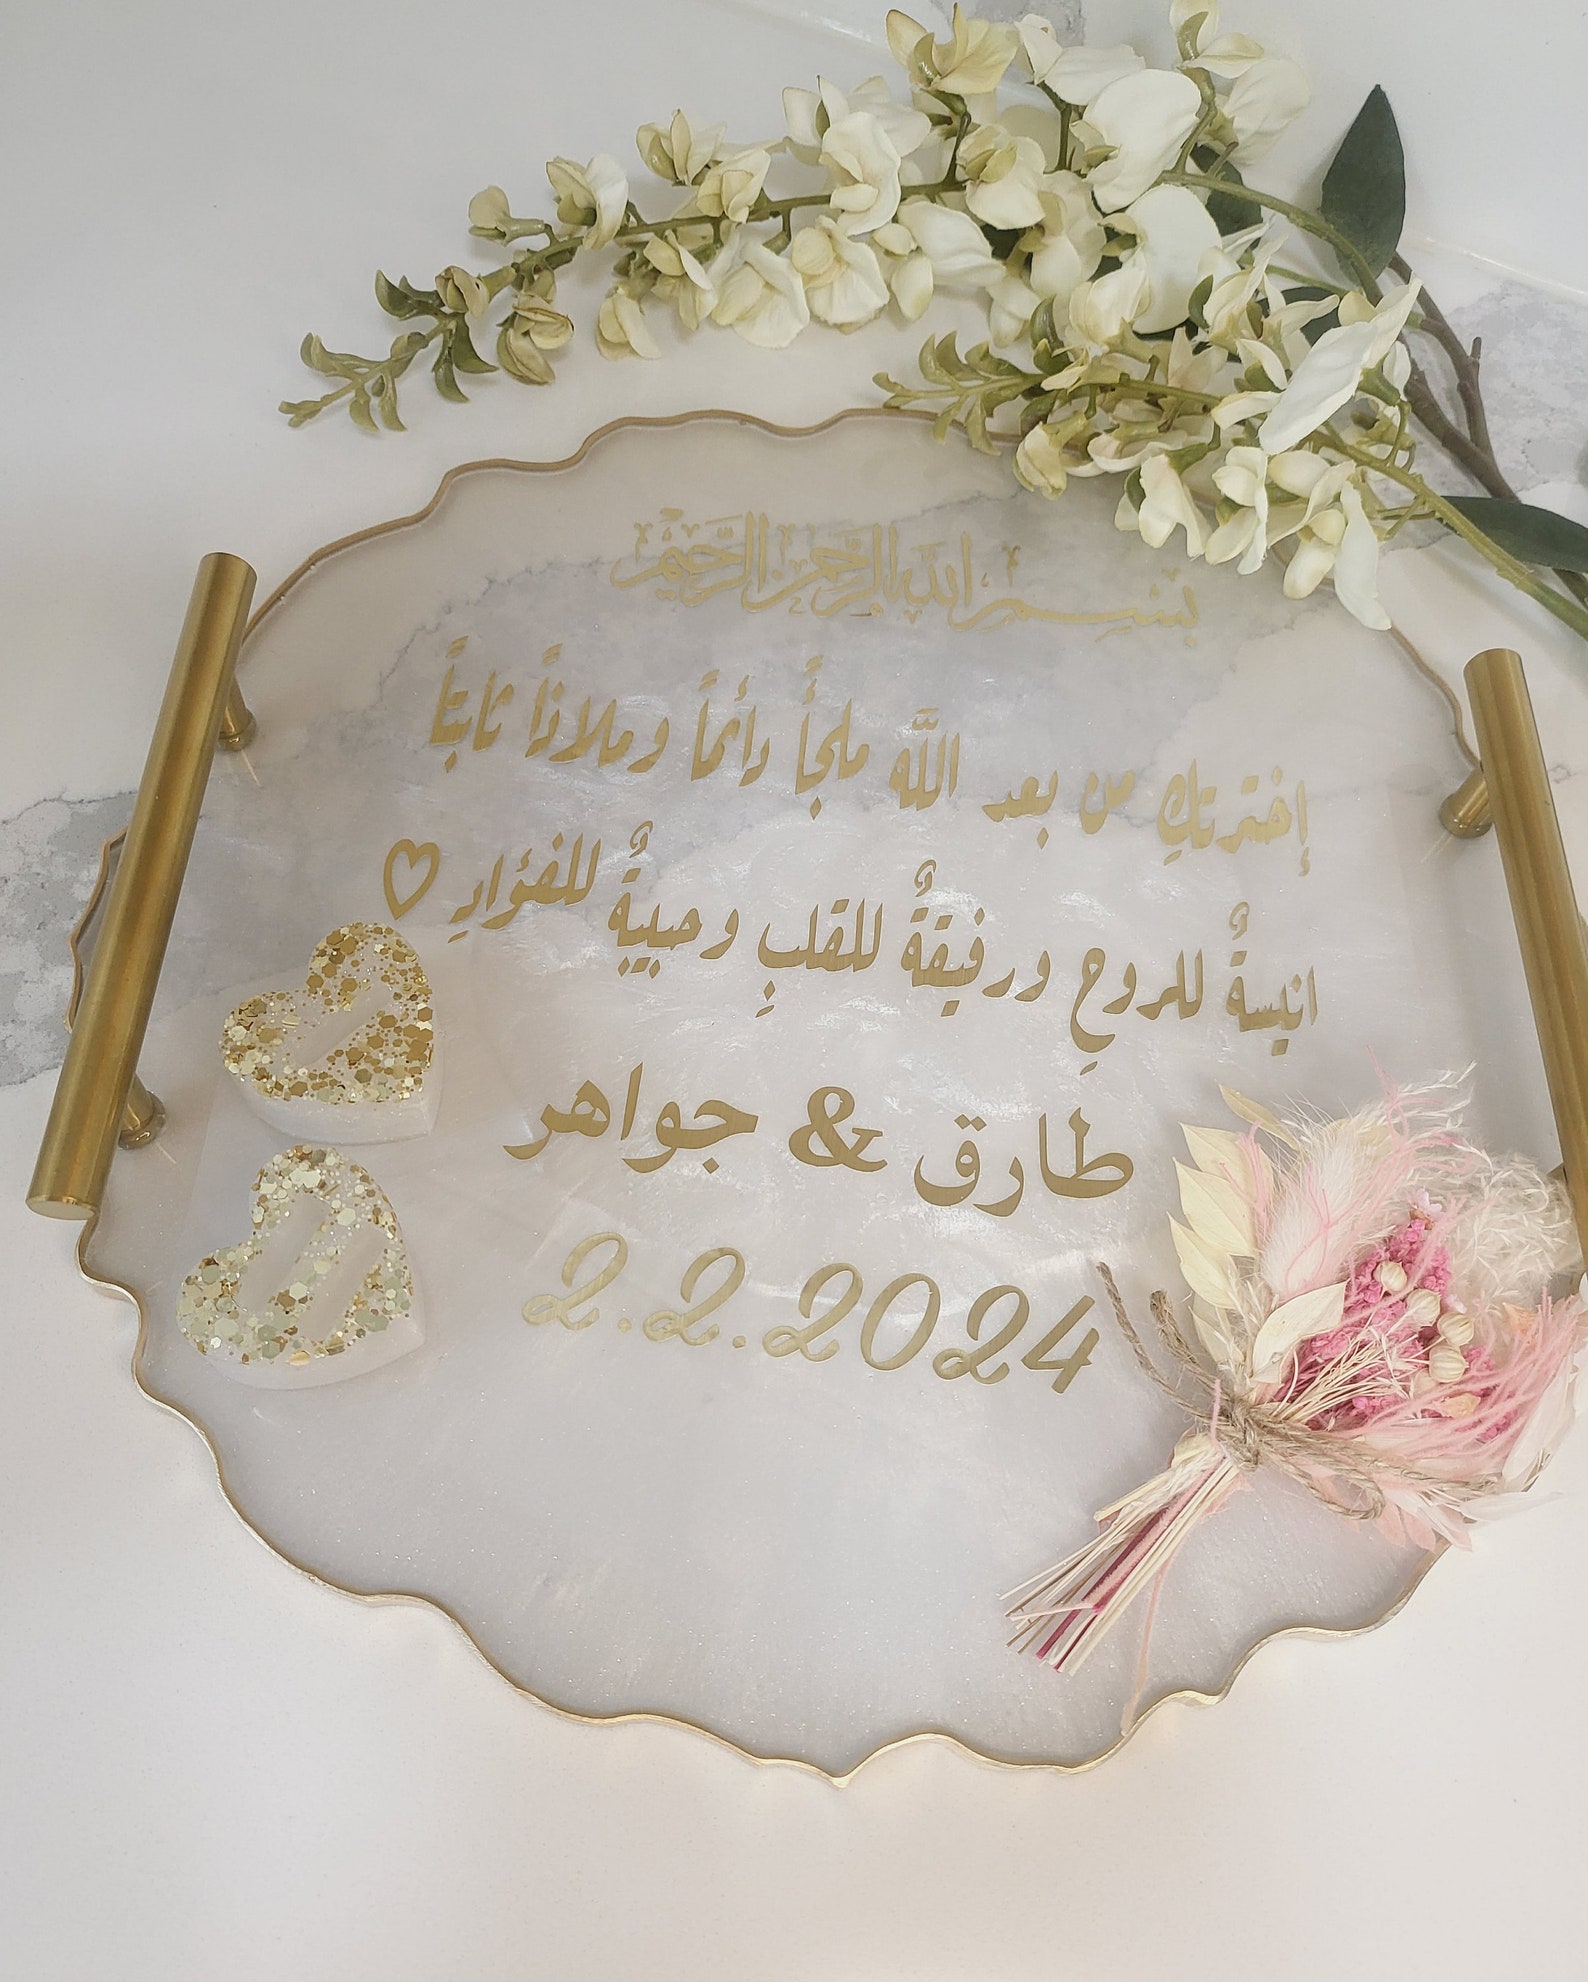 بسم الله الرحمن الرحيم
إخترتكِ من بعد اللَّه ملجأً دأئماً وملاذاً ثابتاً
انيسةٌ للروحِ ورفيقةٌ للقلبِ وحبيبةٌ للفؤادِ ♡
طارق & جواهر
2.2.2024